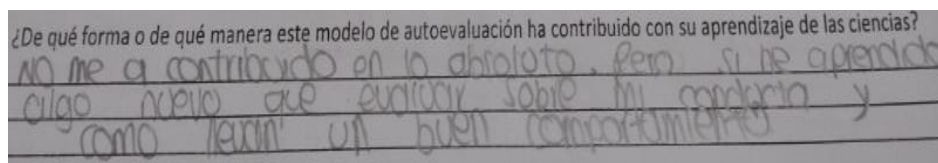 ¿De qué forma o de qué manera este modelo de autoevaluación ha contribuido con su aprendizaje de las ciencias?
No me a contribuido en lo absoluto. Pero si he aprendido
algo nuevo que evaluar sobre mi conducta y
como un buen comportamiento